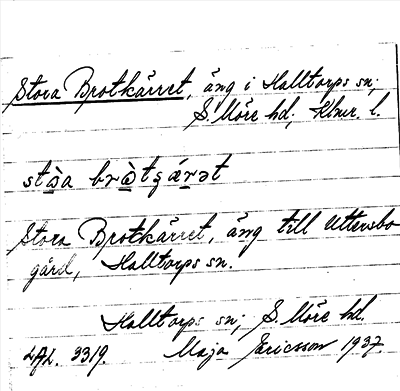 Stora Brotkärret, äng i Halltorps sn;
S. Möre hd; Klmr. l.
stɷ̀a brɷ̀tʒárət
Stora Brotkärret, äng till Uttersbo
gård, Halltorps sn.
Halltorps sn; S. Möre hd.
LAL. 3319. Maja Ericsson 1937.